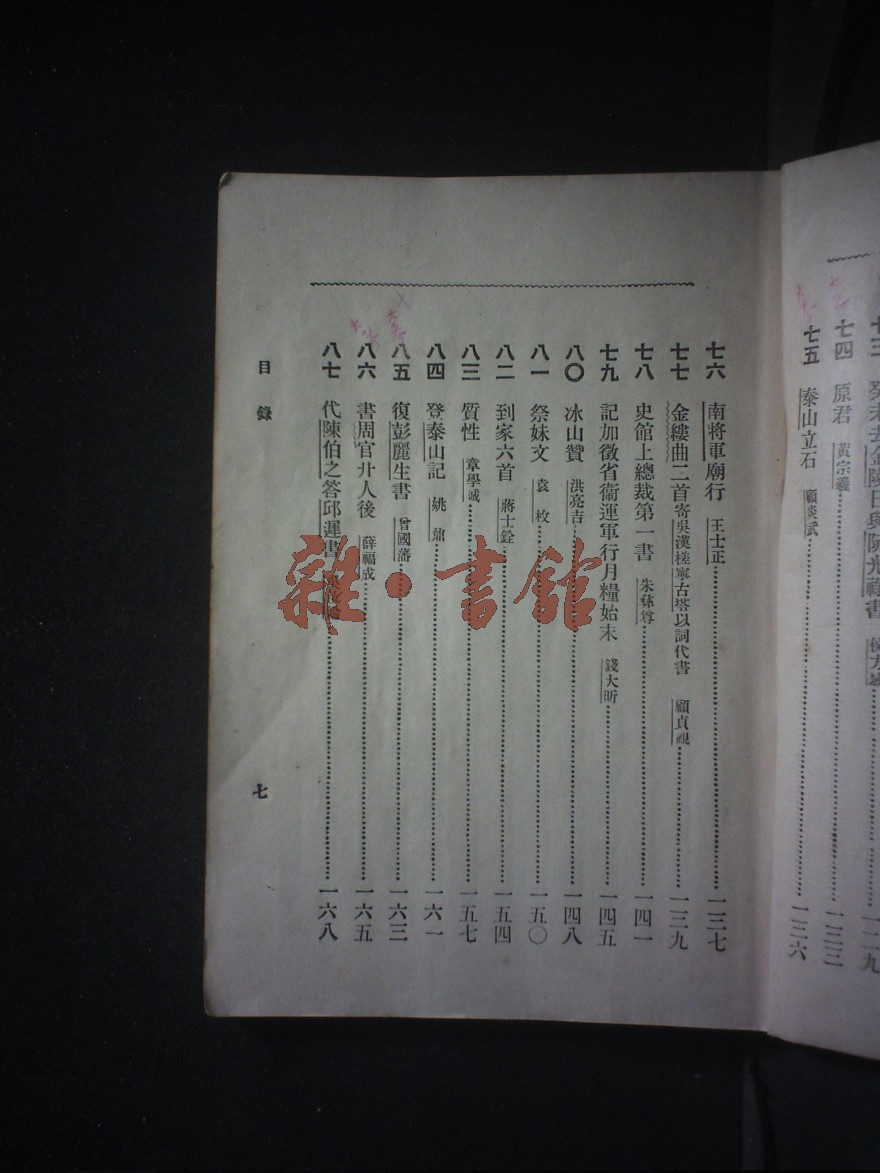 癸未去金陵日與阮光祿書 侯方域 一二九
七四 原君 黃宗羲 一三三
七五 泰山立石 顧炎武 一三六
七六 南將軍廟行 王士正 一三七
七七 金縷曲二首寄吳漢槎寧古塔以詞代書 顧貞觀 一三九
七八 史館上總裁第一書 朱彝尊 一四一
七九 記加徵省衞運軍行月糧始末 錢大昕 一四五
八〇 冰山贊 洪亮吉 一四八
八一 祭妹文 袁枚 一五〇
八二 到家六首 蔣士銓 一五四
八三 質性 章學誠 一五七
八四 登泰山記 姚鼐 一六一
八五 復彭麗生書 曾國藩 一六三
八六 書周官丱人後 薛福成 一六五
八七 代陳伯之答邱遲書 一六八
目錄
七
雜·書館